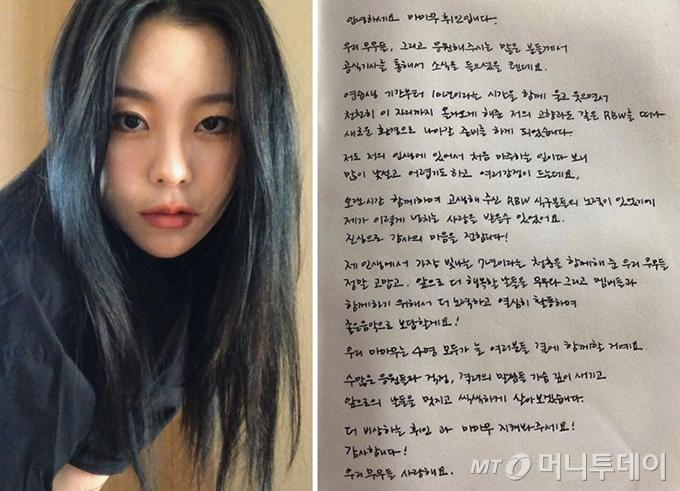 안녕하세요 마마무 휘인입니다.
우리 무무들, 그리고 응원해주시는 많은 분들께서
공식기사를 통해서 소식을 들으셨을 텐데요.
연습생 기간부터 10년이라는 시간을 함께 울고 웃으면서
천천히 이 자리까지 올라오게 해준 저의 고향과도 같은 RBW를 떠나
새로운 환경으로 나아갈 준비를 하게 되었습니다.
저도 저의 인생에 있어서 처음 마주하는 일이다 보니
많이 낯설고 어렵기도 하고 여러감정이 드는데요,
오랜시간 함께하며 고생해 주신 RBW 식구분들의 노력이 있었기에
제가 이렇게 넘치는 사랑을 받을수 있었어요.
진심으로 감사의 마음을 전합니다!
제 인생에서 가장 빛나는 7년이라는 청춘을 함께해 준 우리 무무들
정말 고맙고, 앞으로 더 행복한 날들을 무무와 그리고 멤버들과
함께하기 위해서 더 노력하고 열심히 활동하며
좋은음악으로 보답할게요!
우리 마마무는 4명 모두가 늘 여러분들 곁에 함께할 거예요.
수많은 응원들과 걱정, 격려의 말씀들 가슴 깊이 새기고
앞으로의 날들을 멋지고 씩씩하게 살아보겠습니다.
더 비상하는 휘인 과 마마무 지켜봐주세요!
감사합니다!
우리무무들 사랑해요.
MT 머니투데이